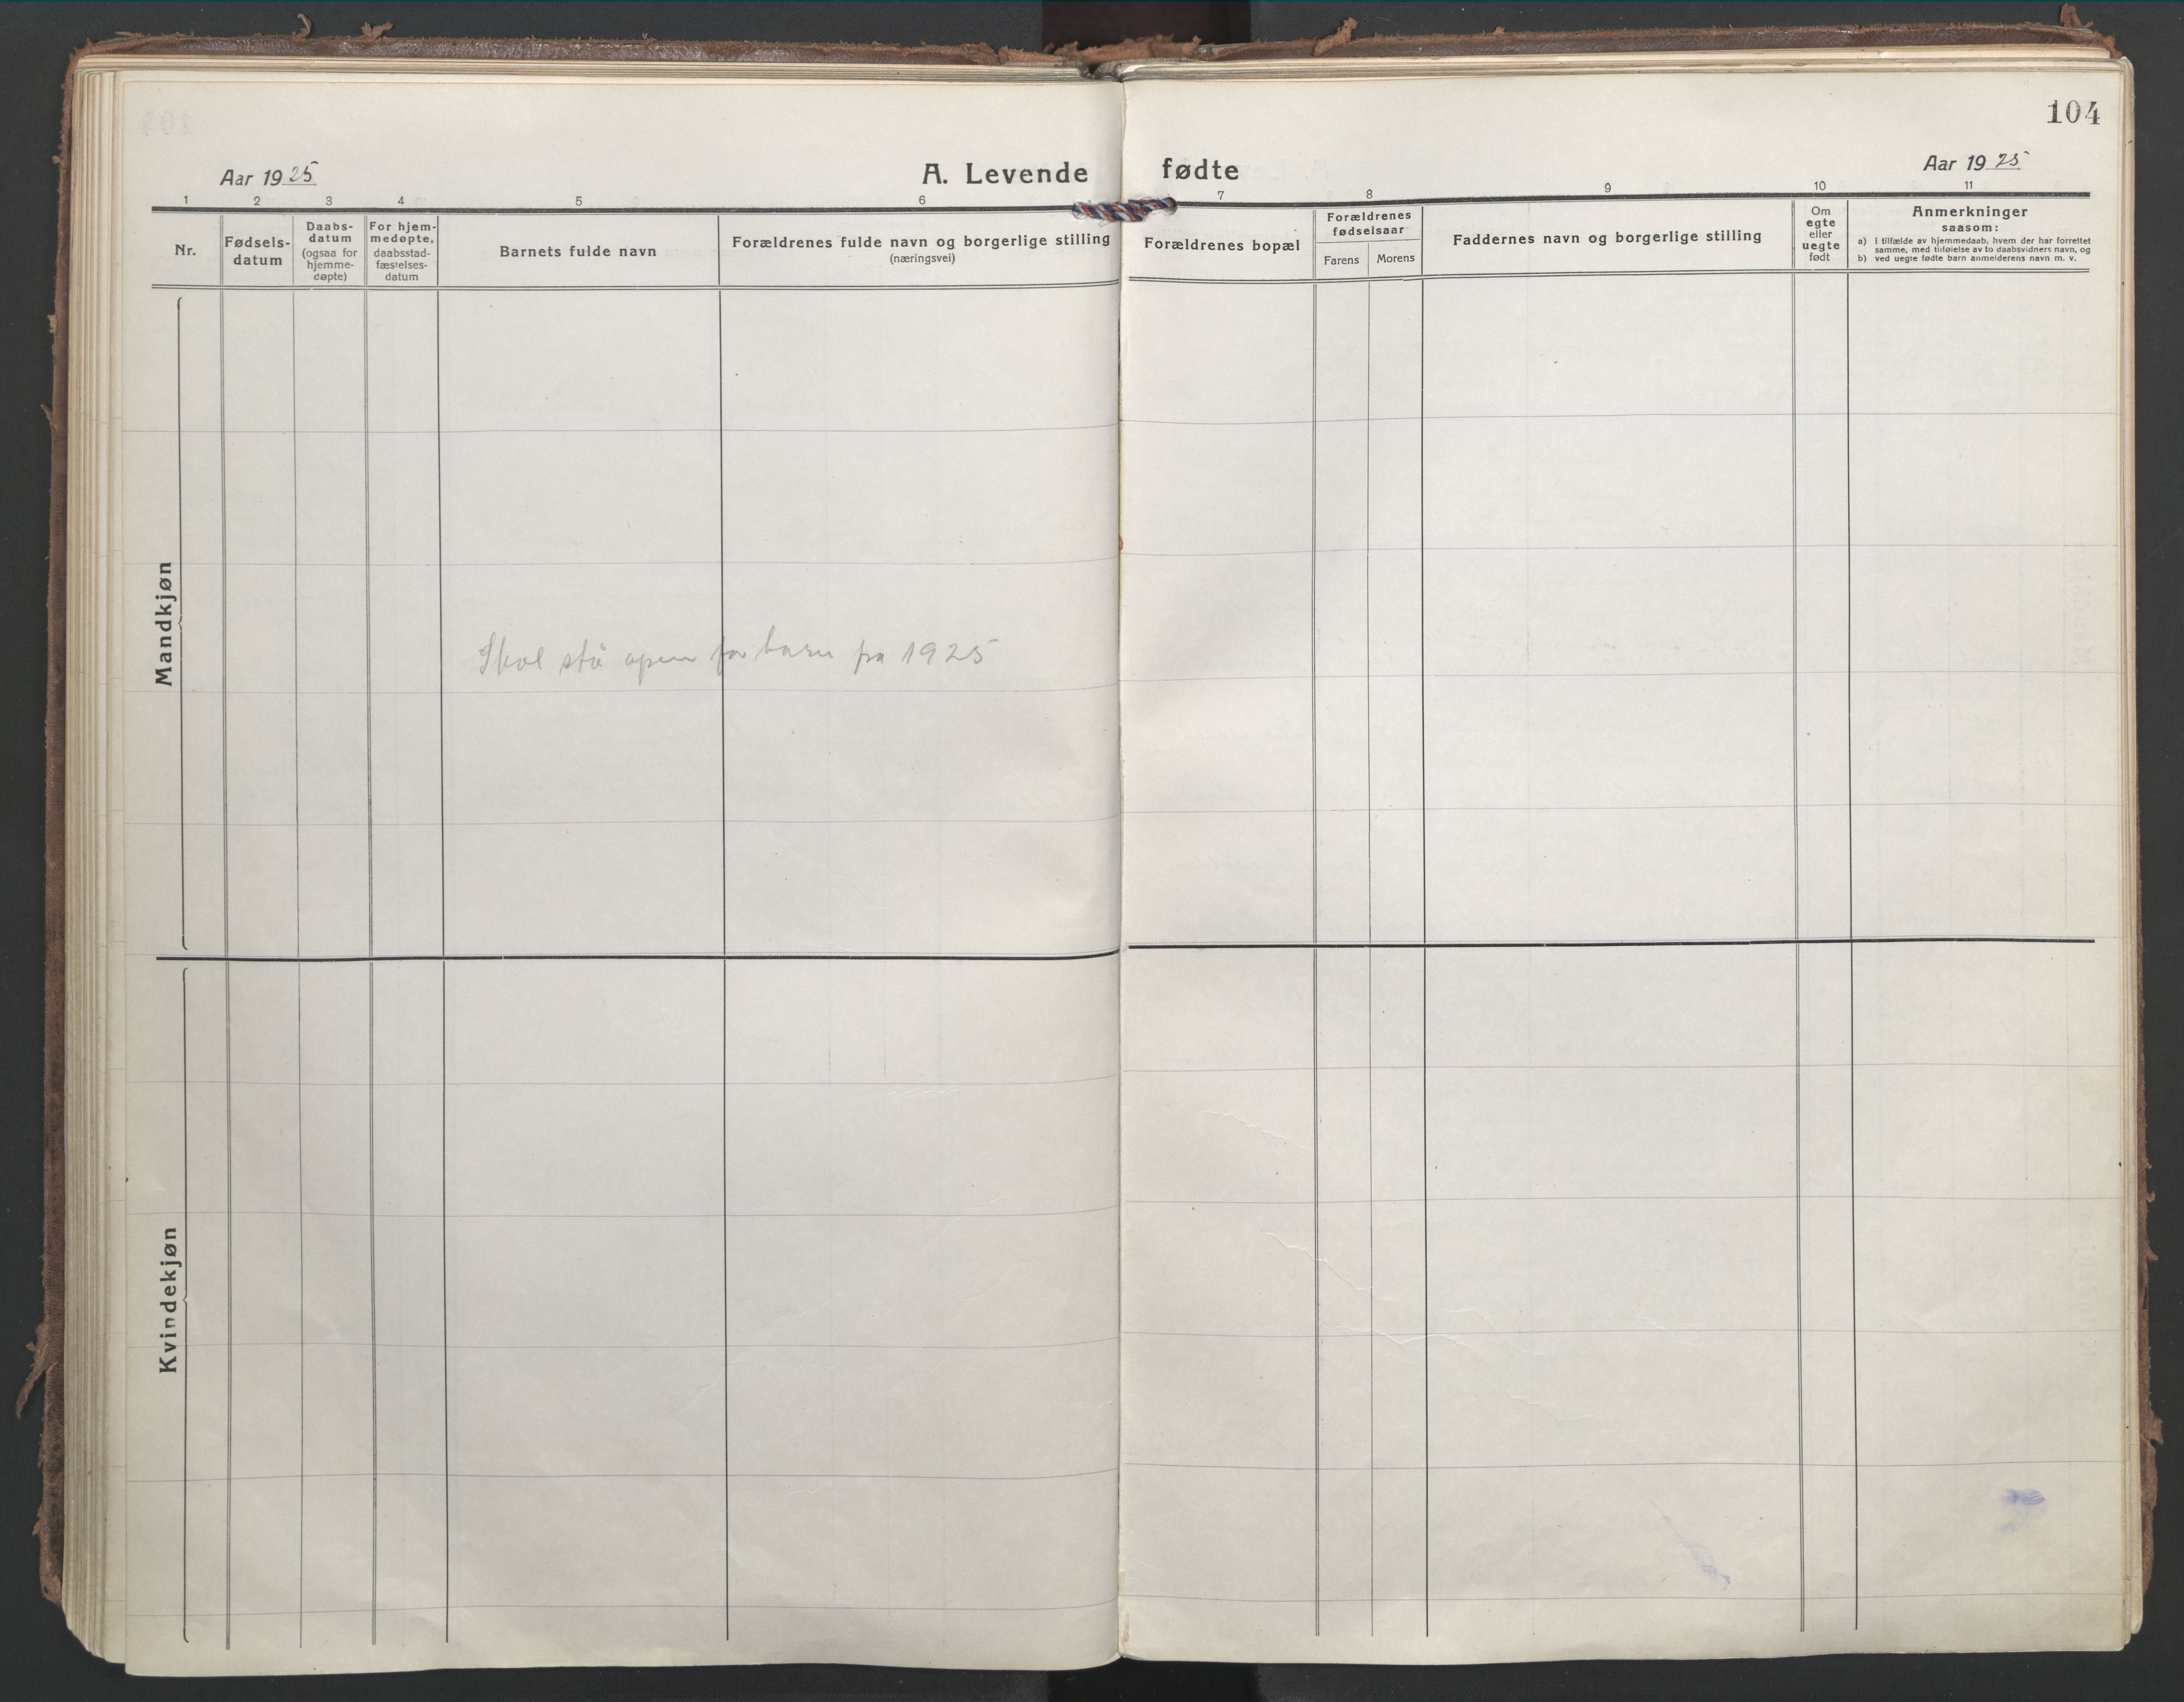 104
Aar 1925
A. Levende fødte
Aar 1925
1 2 3 4 5 6 7 8 9 10 11
Nr.
Fødsels-
datum
Daabs-
datum
(ogsaa for
hjemme-
døpte)
For hjem-
medøpte,
daabsstad-
fæstelses-
datum
Barnets fulde navn
Forældrenes fulde navn og borgerlige stilling
(næringsvei)
Forældrenes bopæl
Forældrenes
fødselsaar
Farens
Morens
Faddernes navn og borgerlige stilling
Om
egte
eller
uegte
født
Anmerkninger
saasom:
a) I tilfælde av hjemmedaab, hvem der har forrettet
samme, med tilføielse av to daabsvidners navn, og
b) ved uegte fødte barn anmelderens navn m. v.
Mandkjøn
Skal stå open for barn fra 1925
Kvindekjøn